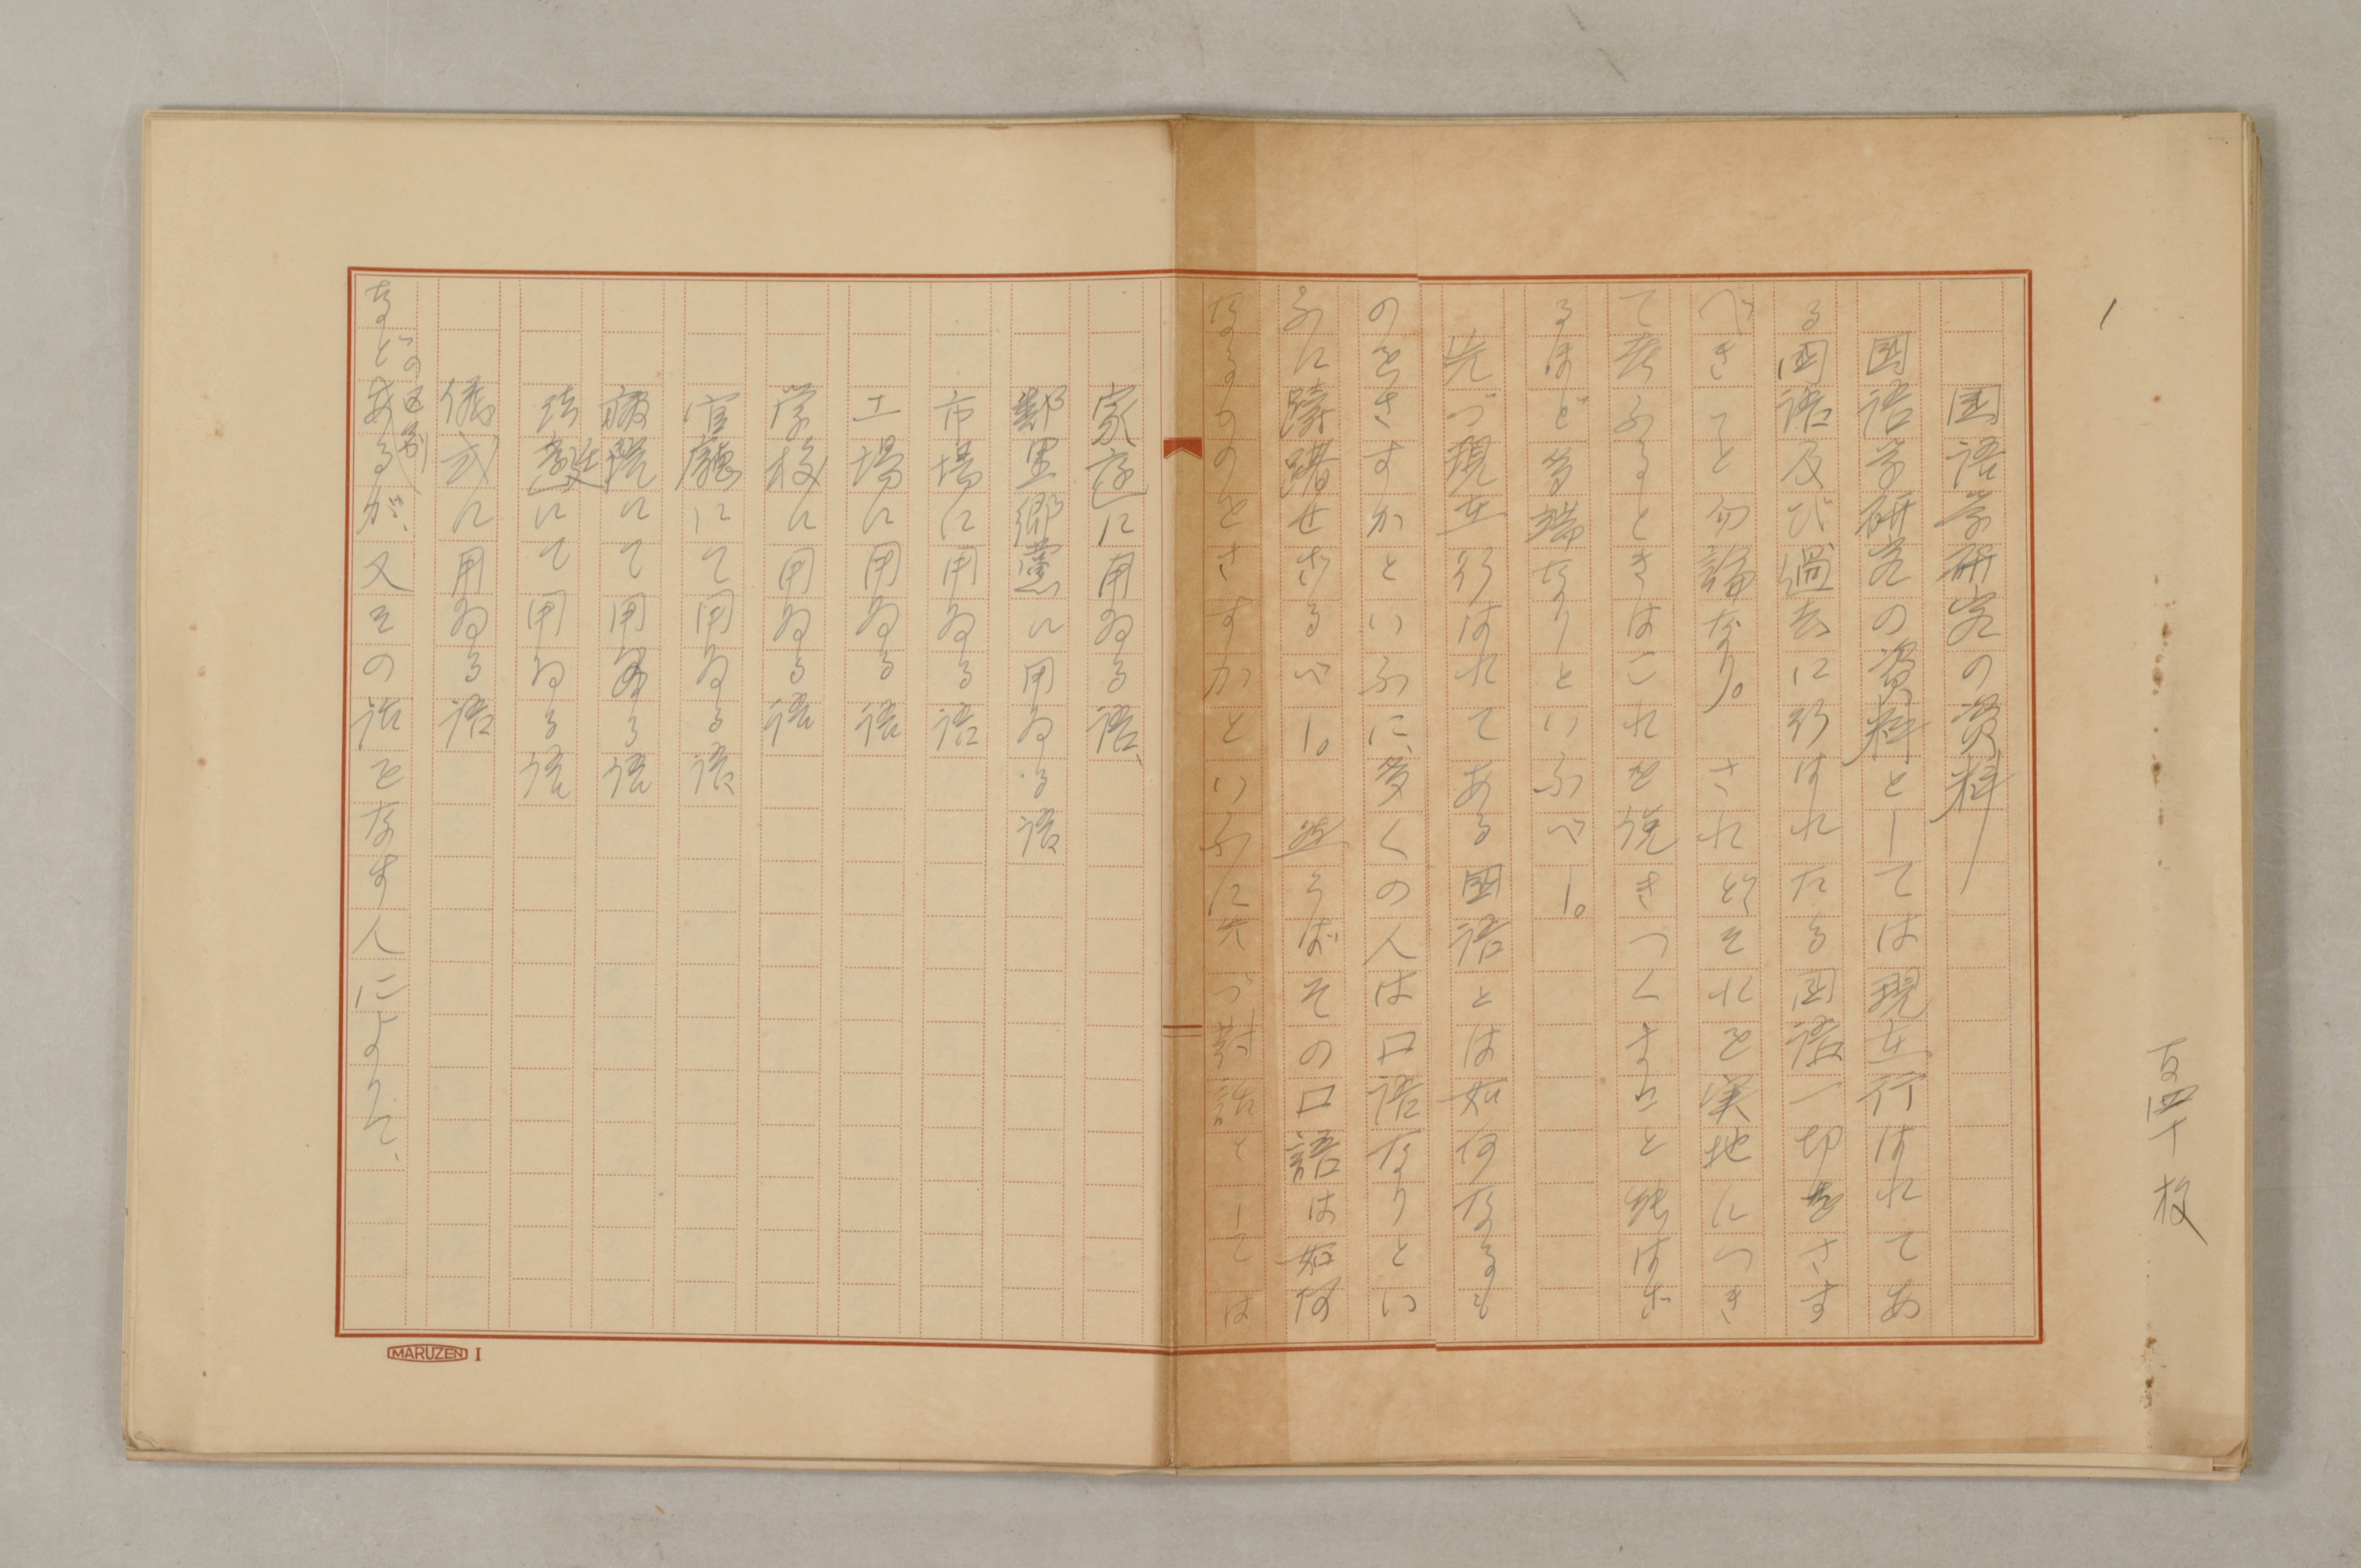 1
百四十枚
国語学研究の資料
国語学研究の資料としては現在行はれてあ
る国語及び過去に行はれたる国語一切をさす
べきこと勿論なり。されどそれを実地につき
て考ふるときはこれを説きつくすこと能はざ
るほど多端なりといふべし。
先づ現在行はれてある国語とは如何なるも
のをさすかといふに、多くの人は口語なりとい
ふに躊躇せざるべし。然らばその口語は如何
なるものをさすかといふに先づ対話としては
家庭に用ゐる語、
鄰里郷党に用ゐる語
市場に用ゐる語
工場に用ゐる語
学校に用ゐる語
官廳にて用ゐる語
にて用ゐる語
法廷にて用ゐる語
儀式に用ゐる語
などの区別あるが、又その話をなす人によりて、
MARUZEN I